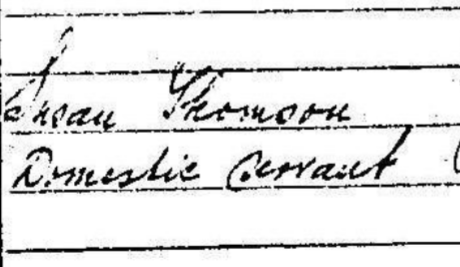 Susan Thomson
Domestic Servant